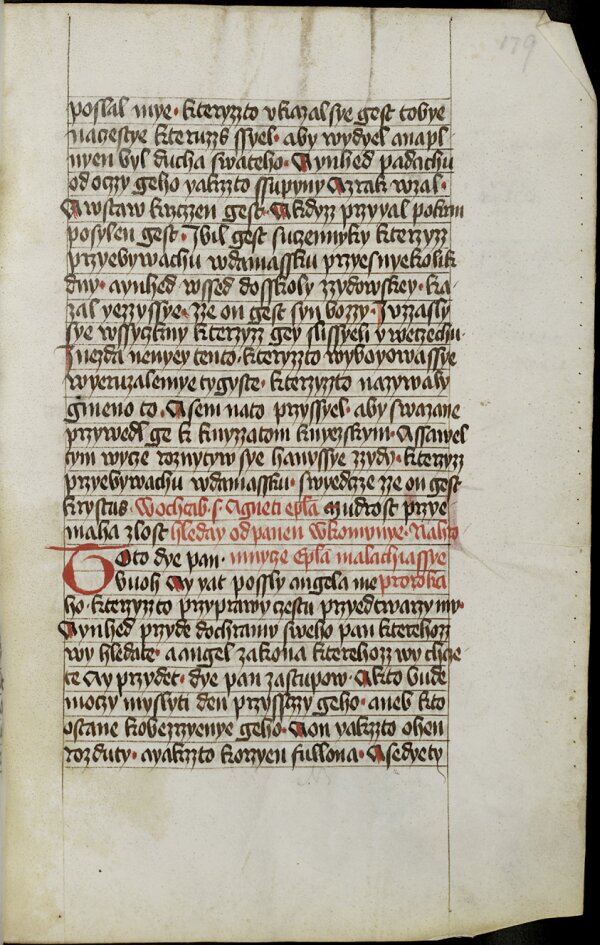 179
poslal mye · kteryzzto vkazal sye gest tobye
nacestye kteruzzs ssyel · aby wydyel a napl
nyen byl ducha swateho · A ynhed padachu
od oczy geho yakzzto ssupyny A zrak wzal ·
A wstaw krzczen gest · A kdyz przyyal pokrm
posylen gest · I bil gest suczennyky kterzyzz
przyebywachu wdamassku przyesnyekolik
dny · aynhed wssed do sskoly zzydowskey · ka
zal yezzyssye · zze on gest syn bozzy · I vzasly
sye wssyczkny kterzyzz gey slissyeli y wecechu ·
Iuezda nenyey tento · kteryzzto wyboyowassye
wyeruzalemye tygyste · kterzyzzto nazywaly
gmeno to · A sem nato przyssyel · aby swazane
przywedl ge k knyzzatom knyezskym · A ssawel
tym wyce roznytyw sye hanyssye zzydy · kterzyzz
przyebywachu wdamassku · swyedcze zze on gest
krystus · Wochtab · s · Agneti epla mudrost przye
maha zlost hleday od panen Wkomynye · Nahro
Toto dye pan · mnyce Epla malachiassye
buoh Ay yat possly angela me proroka
ho · kteryzzto przyprawy cestu przyed twarzy my ·
A ynhed przyde dochramu sweho pan kterehozz
wy hledate · a angel zakona kterehozz wy chce
te Ay przydet · dye pan zastupow · A kto bude
moczy myslyti den przysstzy geho · aneb kto
ostane kobezrzyenye geho · A on yakzzto ohen
rozduty · ayakzzto korzyen fullona · A sedyety